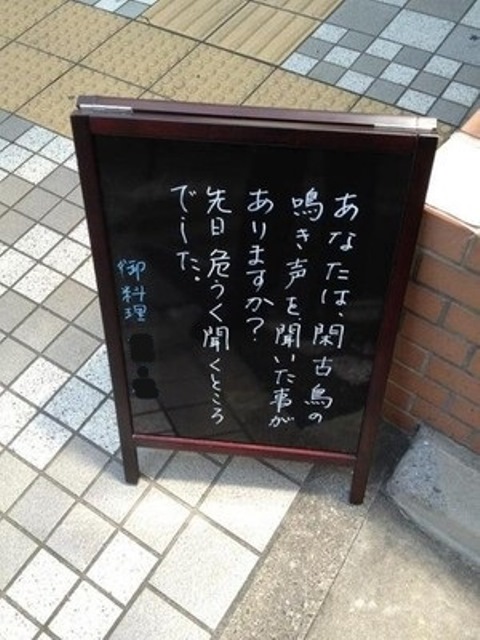 あなたは、閑古鳥の
鳴き声を、聞いた事が
ありますか?
先日危うく聞くところ
でした。
御料理